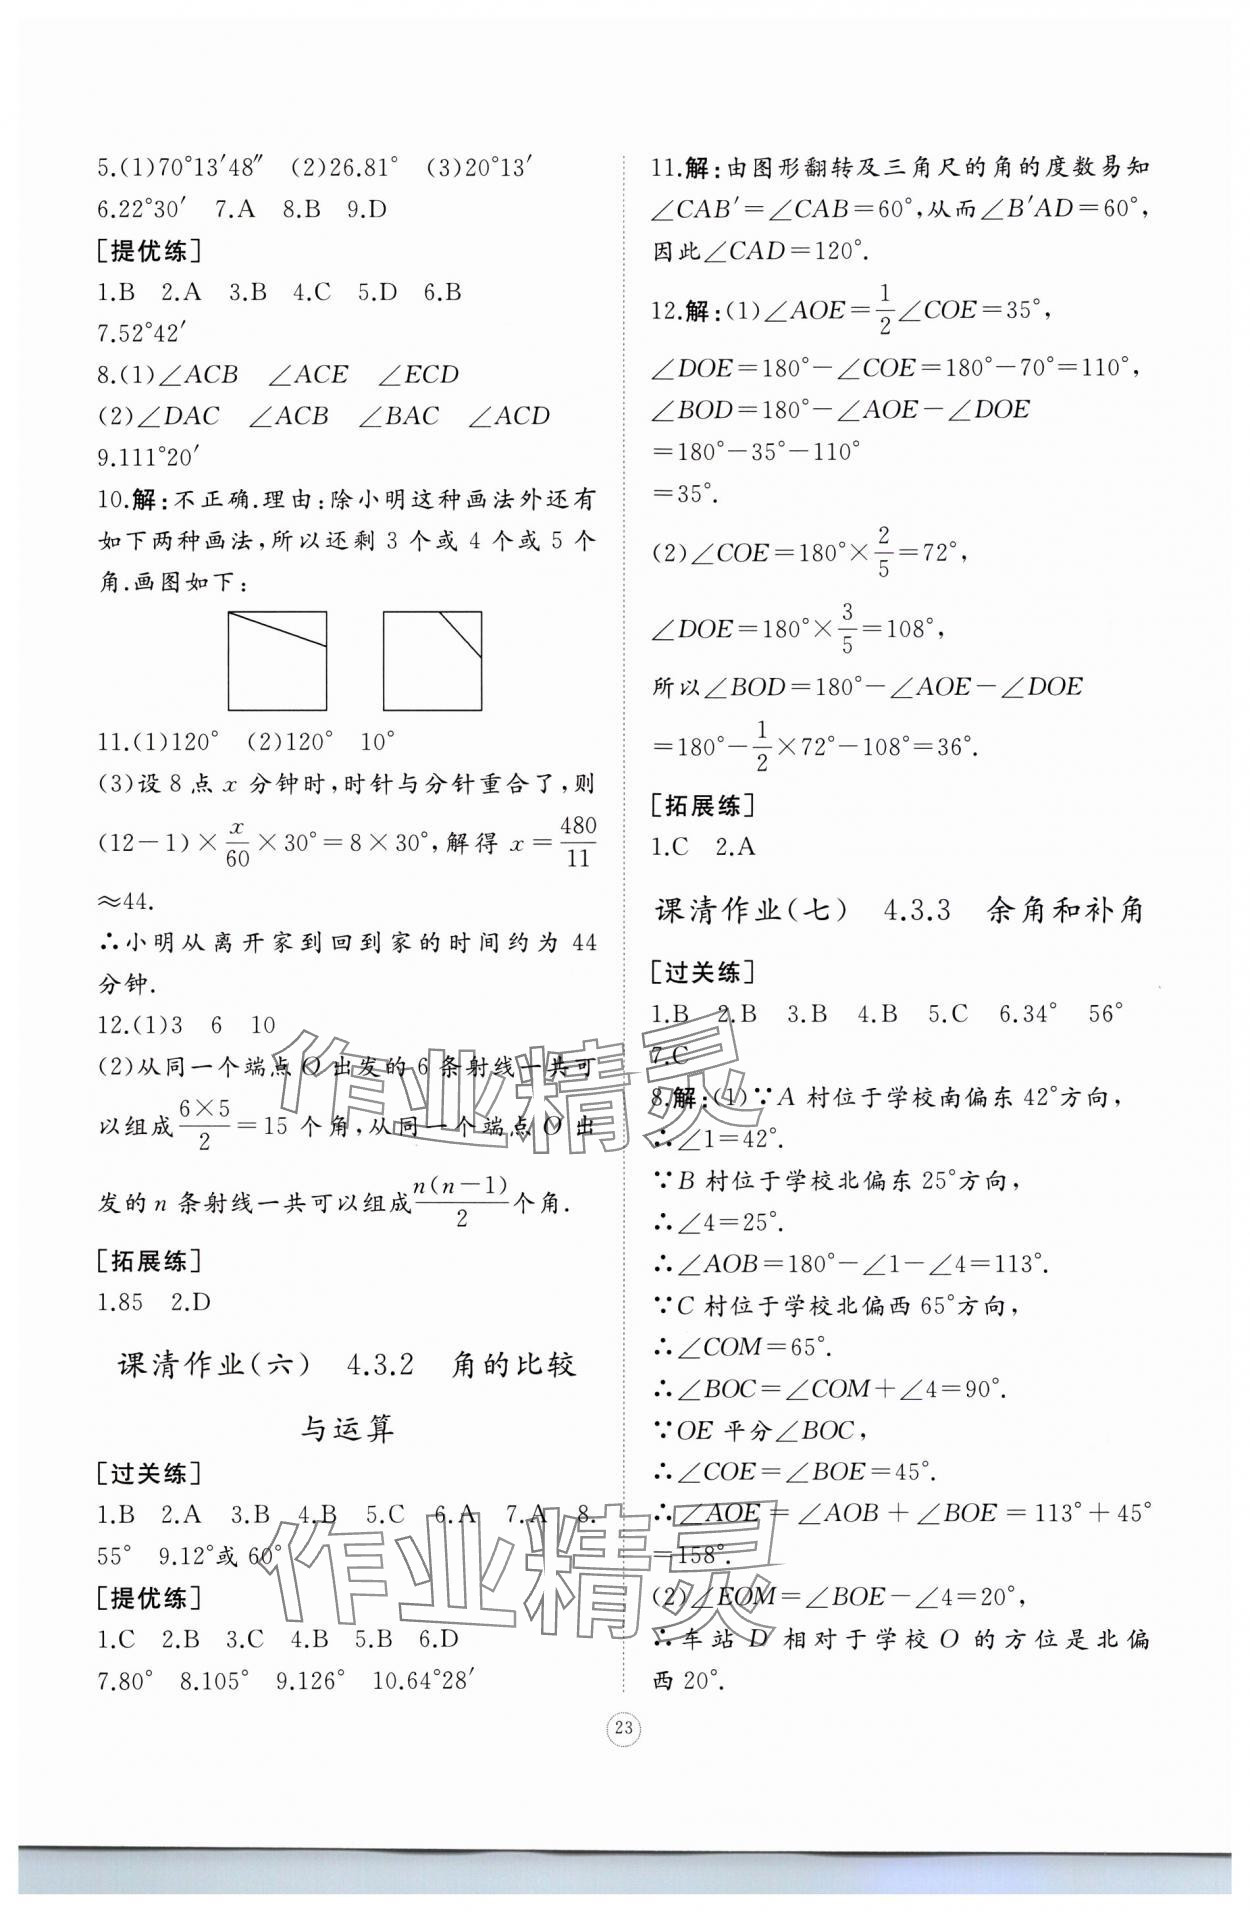 5.(1)70°13′48″ (2)26.81° (3)20°13′
6.22°30′ 7.A 8.B 9.D
[提优练]
1.B 2.A 3.B 4.C 5.D 6.B
7.52°42′
8.(1)∠ACB ∠ACE ∠ECD
(2)∠DAC ∠ACB ∠BAC ∠ACD
9.111°20′
10.解:不正确.理由:除小明这种画法外还有
如下两种画法,所以还剩 3 个或 4 个或 5 个
角.画图如下:
11.(1)120° (2)120° 10°
(3)设 8 点 x 分钟时,时针与分针重合了,则
(12-1)×x/60×30°=8×30°,解得 x=480/11
≈44.
∴小明从离开家到回到家的时间约为 44
分钟.
12.(1)3 6 10
(2)从同一个端点 O 出发的 6 条射线一共可
以组成6×5/2=15 个角,从同一个端点 O 出
发的 n 条射线一共可以组成n(n-1)/2个角.
[拓展练]
1.85 2.D
课清作业(六) 4.3.2 角的比较
与运算
[过关练]
1.B 2.A 3.B 4.B 5.C 6.A 7.A 8.
55° 9.12°或 60°
[提优练]
1.C 2.B 3.C 4.B 5.B 6.D
7.80° 8.105° 9.126° 10.64°28′
11.解:由图形翻转及三角尺的角的度数易知
∠CAB′=∠CAB=60°,从而∠B′AD=60°,
因此∠CAD=120°.
12.解:(1)∠AOE=1/2∠COE=35°,
∠DOE=180°-∠COE=180°-70°=110°,
∠BOD=180°-∠AOE-∠DOE
=180°-35°-110°
=35°.
(2)∠COE=180°×2/5=72°,
∠DOE=180°×3/5=108°,
所以∠BOD=180°-∠AOE-∠DOE
=180°-1/2×72°-108°=36°.
[拓展练]
1.C 2.A
课清作业(七) 4.3.3 余角和补角
[过关练]
1.B 2.B 3.B 4.B 5.C 6.34° 56°
7.C
8.解:(1)∵A 村位于学校南偏东 42°方向,
∴∠1=42°.
∵B 村位于学校北偏东 25°方向,
∴∠4=25°.
∴∠AOB=180°-∠1-∠4=113°.
∵C 村位于学校北偏西 65°方向,
∴∠COM=65°.
∴∠BOC=∠COM+∠4=90°.
∵OE 平分∠BOC,
∴∠COE=∠BOE=45°.
∴∠AOE=∠AOB+∠BOE=113°+45°
=158°.
(2)∠EOM=∠BOE-∠4=20°,
∴车站 D 相对于学校 O 的方位是北偏
西 20°.
23
作业精灵
作业精灵